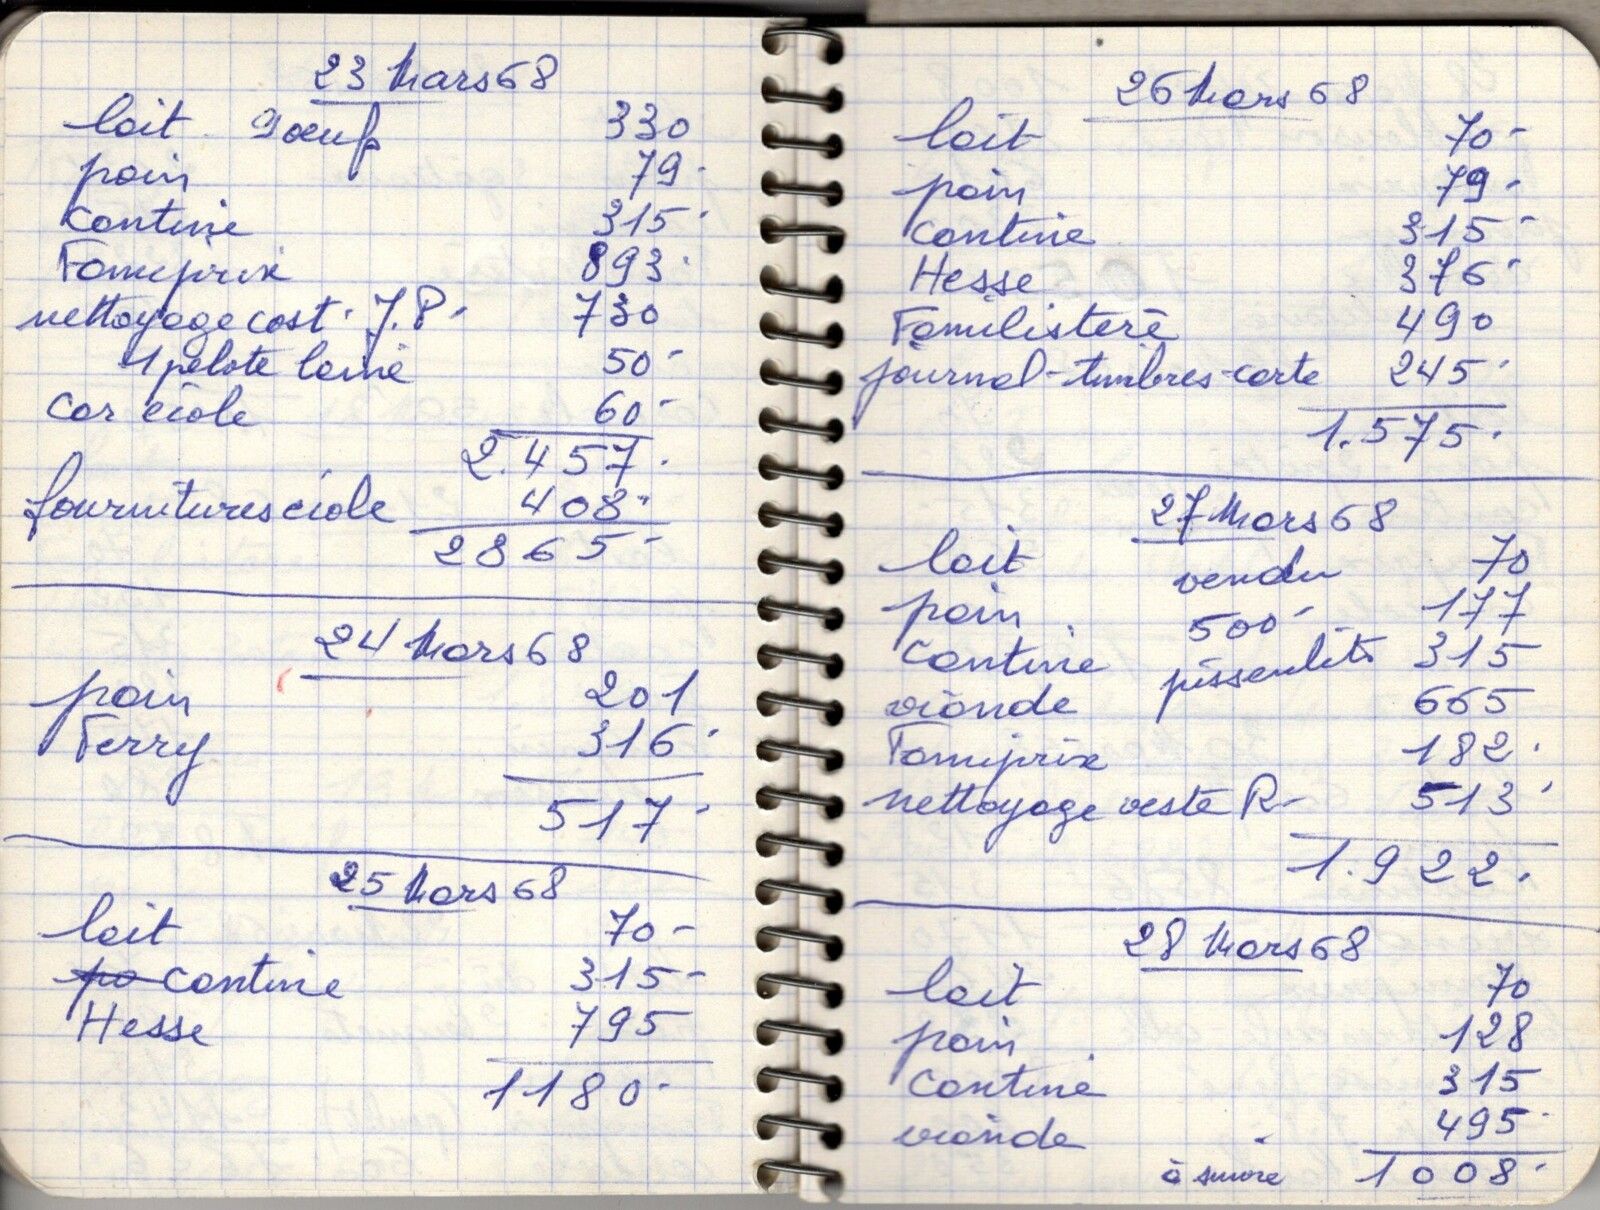 23 Mars 68
lait 9 œuf 330
pain 79-
Cantine 315-
Famiprix 893-
nettoyage cost. J.P. 730
1 pelote laine 50-
Car école 60-
2.457.
fournitures école 408-
2865-
24 Mars 68
pain 201
Ferry 316-
517-
25 Mars 68
lait 70-
po cantine 315-
Hesse 795
1180-
26 Mars 68
lait 70-
pain 79-
Cantine 315-
Hesse 376-
Familistère 490
journal-timbres-carte 245-
1.575.
27 Mars 68
lait vendu 70
pain 500- 177
Cantine pissenlits 315
viande 665
Famiprix 182.
nettoyage veste R- 513-
1.922.
28 Mars 68
lait 70
pain 128
Cantine 315
viande 495-
à suivre 1008-